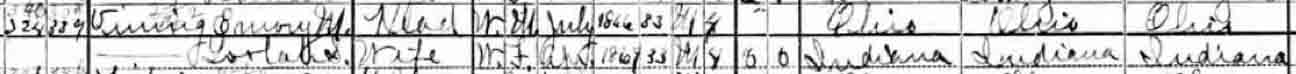 324 339 Vining Emory M. Head W. M. July 1866 33 M 8 Ohio Ohio Ohio
Wife W. F. 33 M 8 0 0 Indiana Indiana Indiana